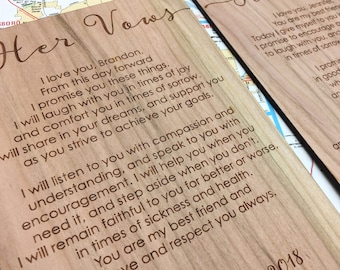 Her Vows
I love you, Brandon.
From this day forward
I promise you these things.
I will laugh with you in times of joy
and comfort you in times of sorrow.
will share in your dreams, and support you
as you strive to achieve your goals.
I will listen to you with compassion and
understanding, and speak to you with
encouragement. I will help you when you
need it, and step aside when you don't.
I will remain faithful to you for better or worse,
in times of sickness and health.
You are my best friend and
ve and respect you always.
2018
I love you, Jennifer.
you are my best frien
Today I give myself to you in
I promise to encourage an
to laugh with you, and
in times of sorro